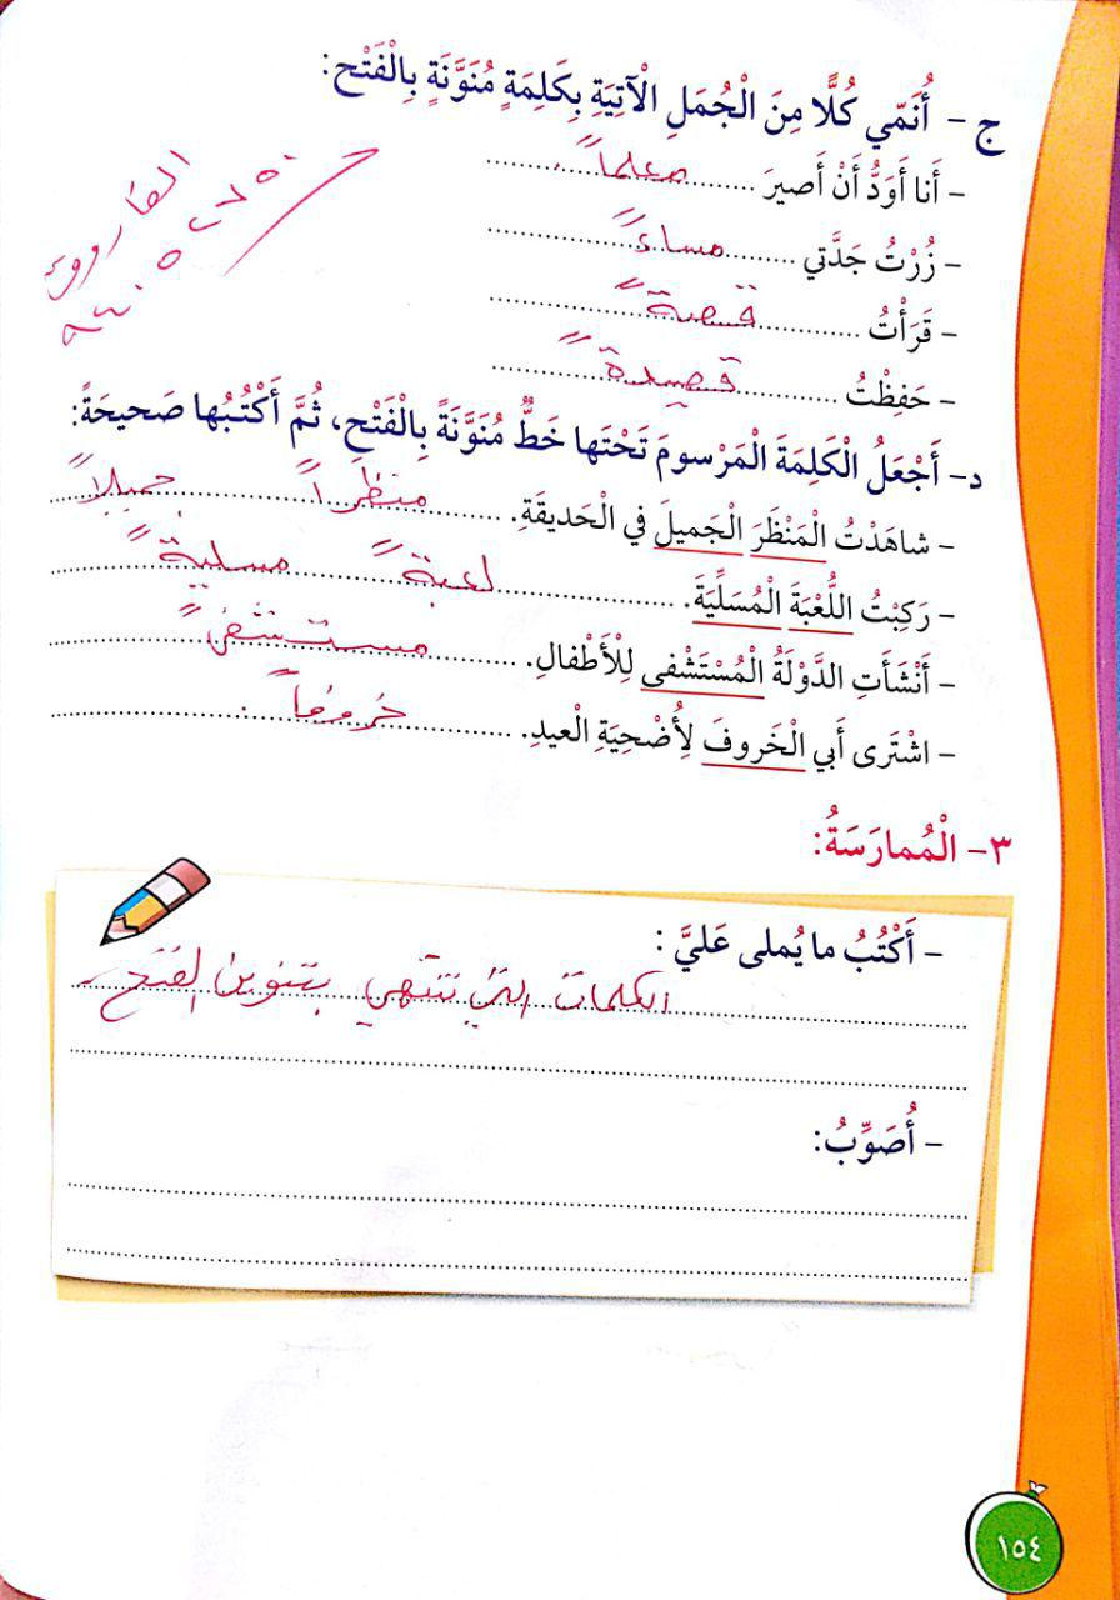 ج - أُنَمّي كُلًّا مِنَ الْجُمَلِ الْآتِيَةِ بِكَلِمَةٍ مُنَوَّنَةٍ بِالْفَتْحِ:
- أَنا أَوَدُّ أَنْ أَصيرَ معلماً
- زُرْتُ جَدَّتي مساءً
- قَرَأْتُ قصةً
- حَفِظْتُ قصيدةً
د- أَجْعَلُ الْكَلِمَةَ الْمَرْسومَ تَحْتَها خَطٌّ مُنَوَّنَةً بِالْفَتْحِ، ثُمَّ أَكْتُبُها صَحيحَةً:
- شاهَدْتُ الْمَنْظَرَ الْجَميلَ في الْحَديقَةِ. منظراً جميلاً
- رَكِبْتُ اللُّعْبَةَ الْمُسَلِّيَةَ. لعبةً مسليةً
- أَنْشَأَتِ الدَّوْلَةُ الْمُسْتَشْفى لِلْأَطْفالِ. مستشفىً
- اشْتَرى أَبي الْخَروفَ لِأُضْحِيَةِ الْعيدِ. خروفاً
٣- الْمُمارَسَةُ:
- أَكْتُبُ ما يُملى عَليَّ :
الكلمات التي تنتهي بتنوين الفتح
- أُصَوِّبُ:
١٥٤